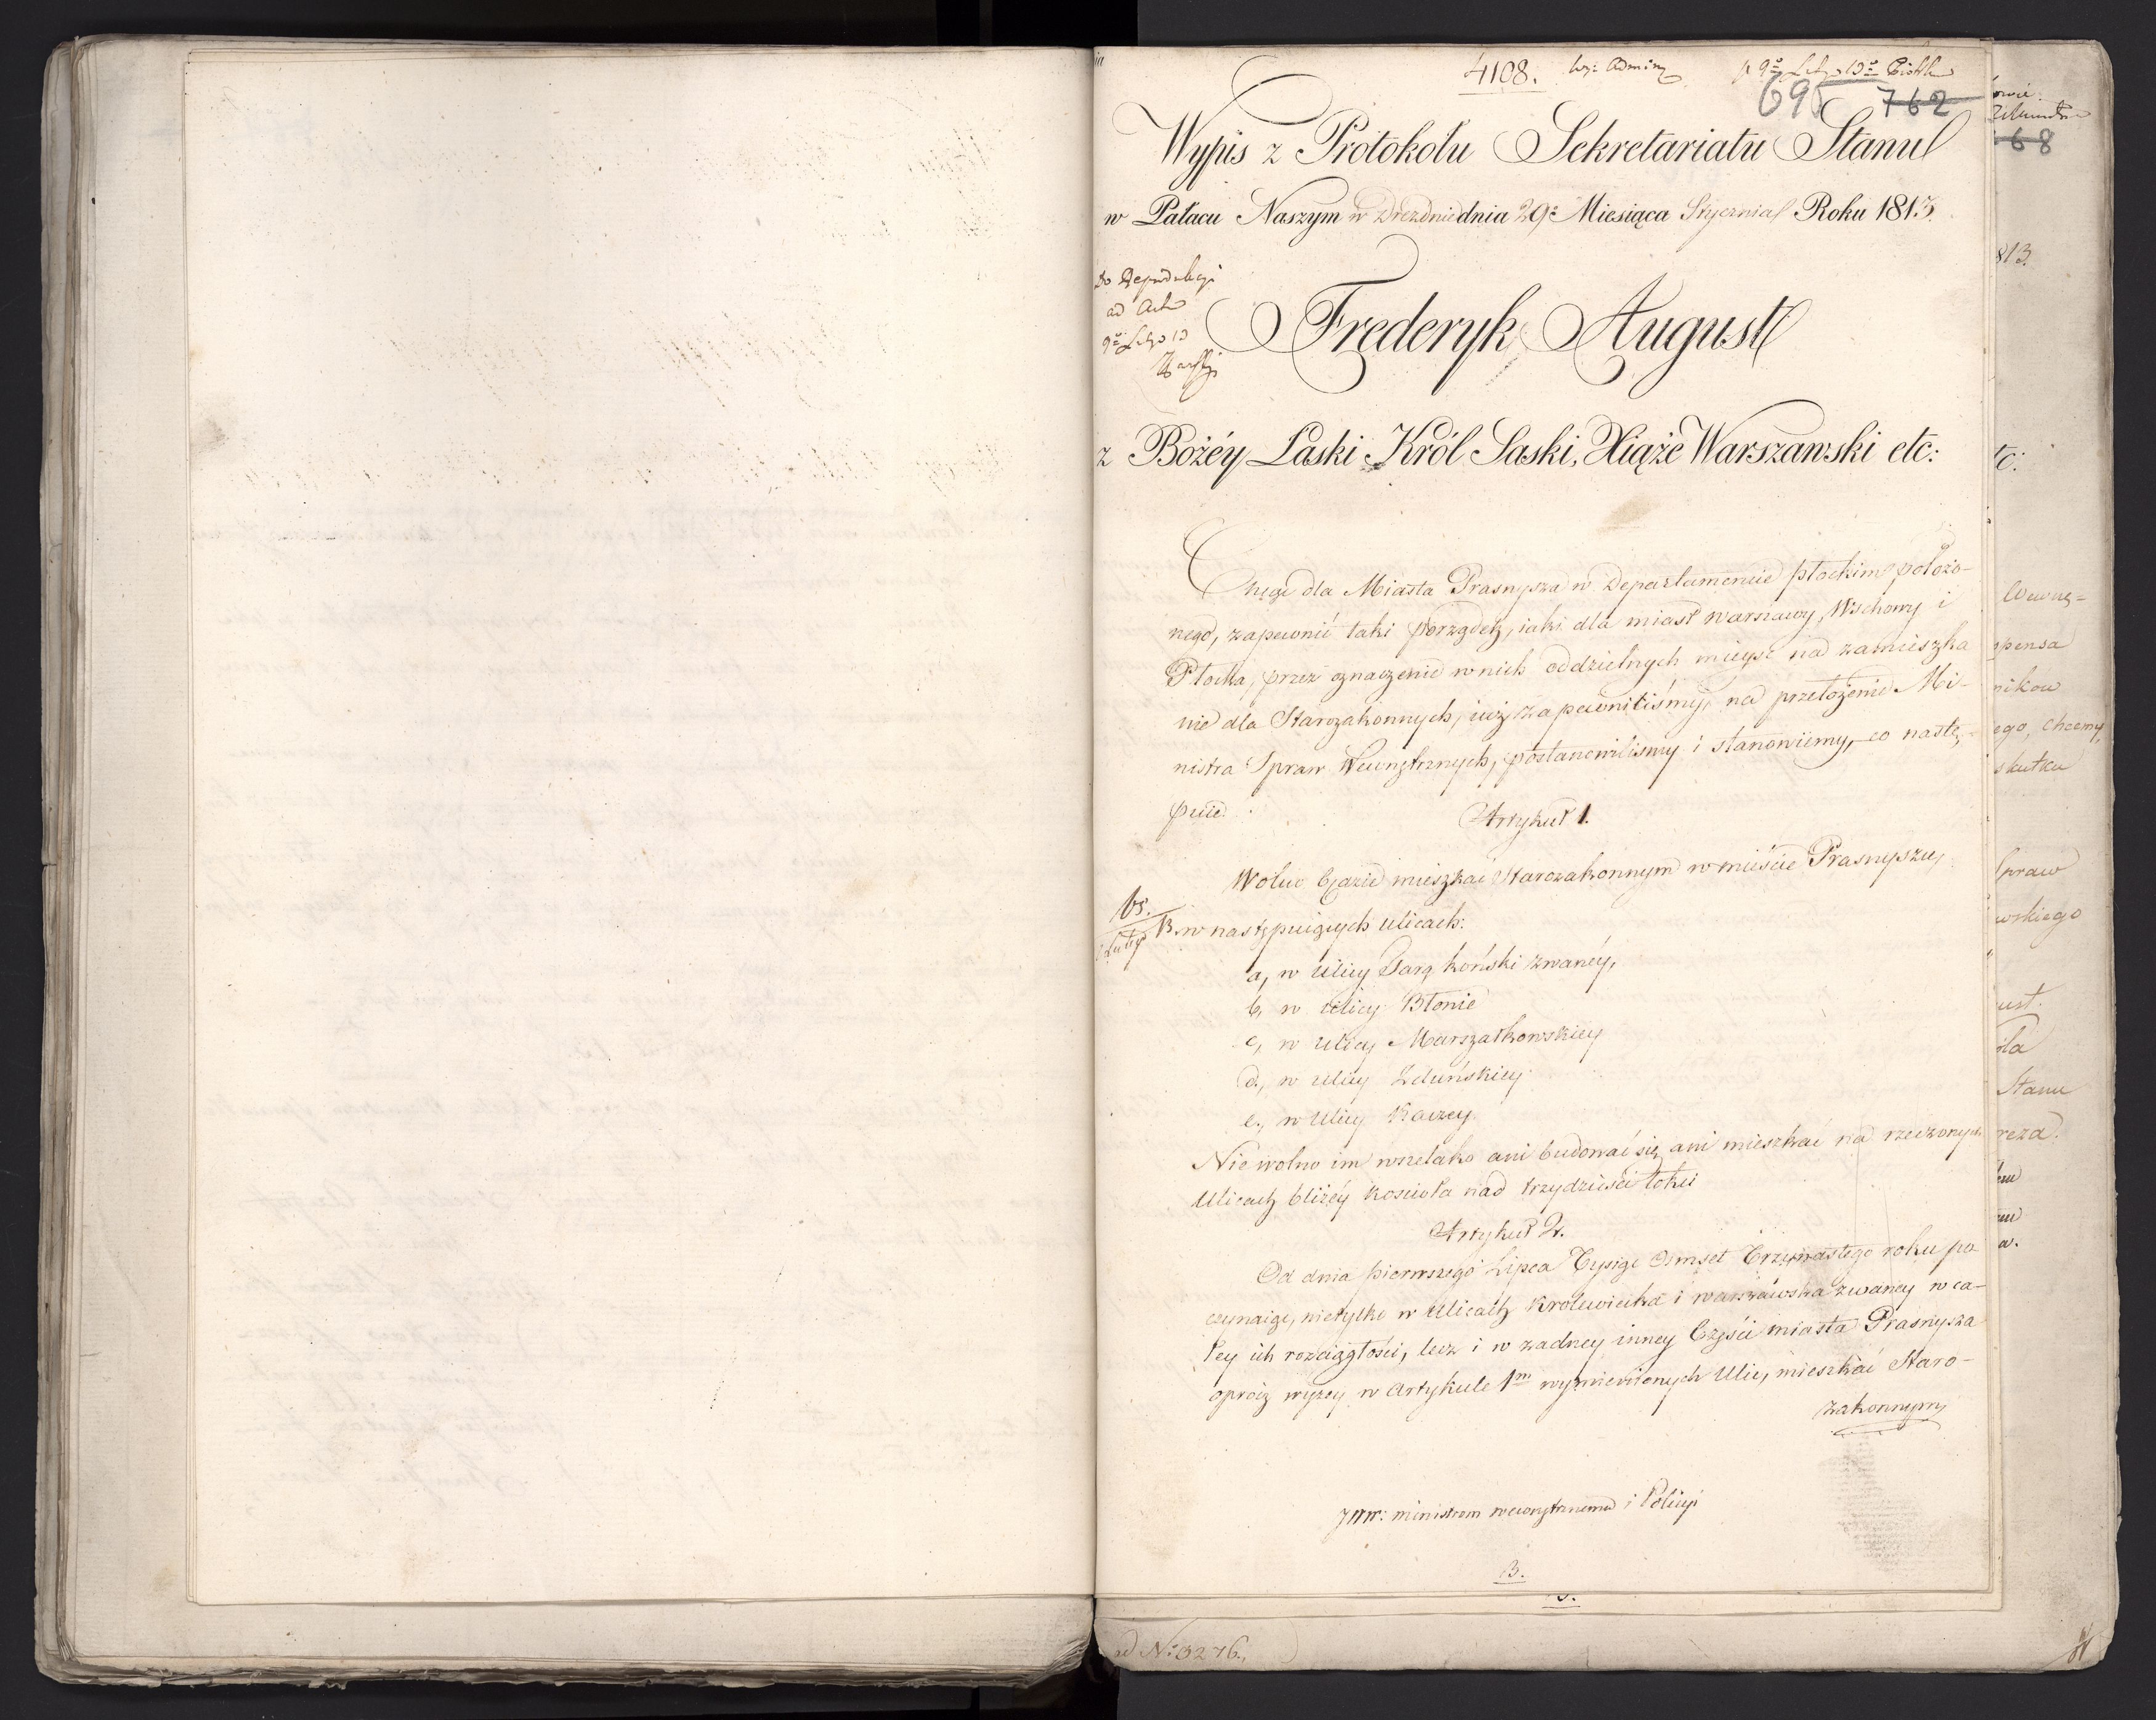 4108.
695 762
Wypis z Protokołu Sekretariatu Stanu
w Pałacu Naszym w Dreznie dnia 29. Miesiąca Stycznia Roku 1813.
ad Acta
Frederyk August
z Bożéy Łaski Król Saski, Xiąże Warszawski etc:
Chcąc dla Miasta Prasnysza w Departamencie płockim położo-
nego, zapewnić taki porządek, iaki dla miast Warszawy, Wschowy i
Płocka, przez oznaczenie w nich oddzielnych mieysc na zamieszka
nie dla Starozakonnych, iuż zapewniliśmy, na przełożenie Mi-
nistra Spraw Wewnętrznych, postanowilismy i stanowiemy, co nastę-
puie.
Artykuł 1.
Wolno będzie mieszkać Starozakonnym w mieście Prasnyszu,
w następuiących ulicach:
a, w ulicy Targ koński zwanéy,
b, w ulicy Błonie
c, w ulicy Marszałkowskiey
d., w ulicy Zduńskiey
e., w ulicy Kaczey.
Nie wolno im wszelako ani budować się ani mieszkać na rzeczonych
Ulicach bliżéy kościoła nad trzydzieści łokci
Artykuł 2.
Od dnia pierwszego Lipca Tysiąc Ośmset Trzynastego roku po
czynaiąc, nietylko w ulicach Krolewiecka i warszawska zwaney w ca-
łey ich rozciągłości, lecz i w żadney inney Części miasta Prasnysza
oprócz wyżey w Artykule 1m wymienionych Ulic, mieszkać Staro-
zakonnym
JWW: ministrom wewnętrznemu i Policyi
3.
ad No 3276.
813.
etc:
Wewnę-
ego, chcemy,
skutku
Spraw
wskiego
ust.
Stanu